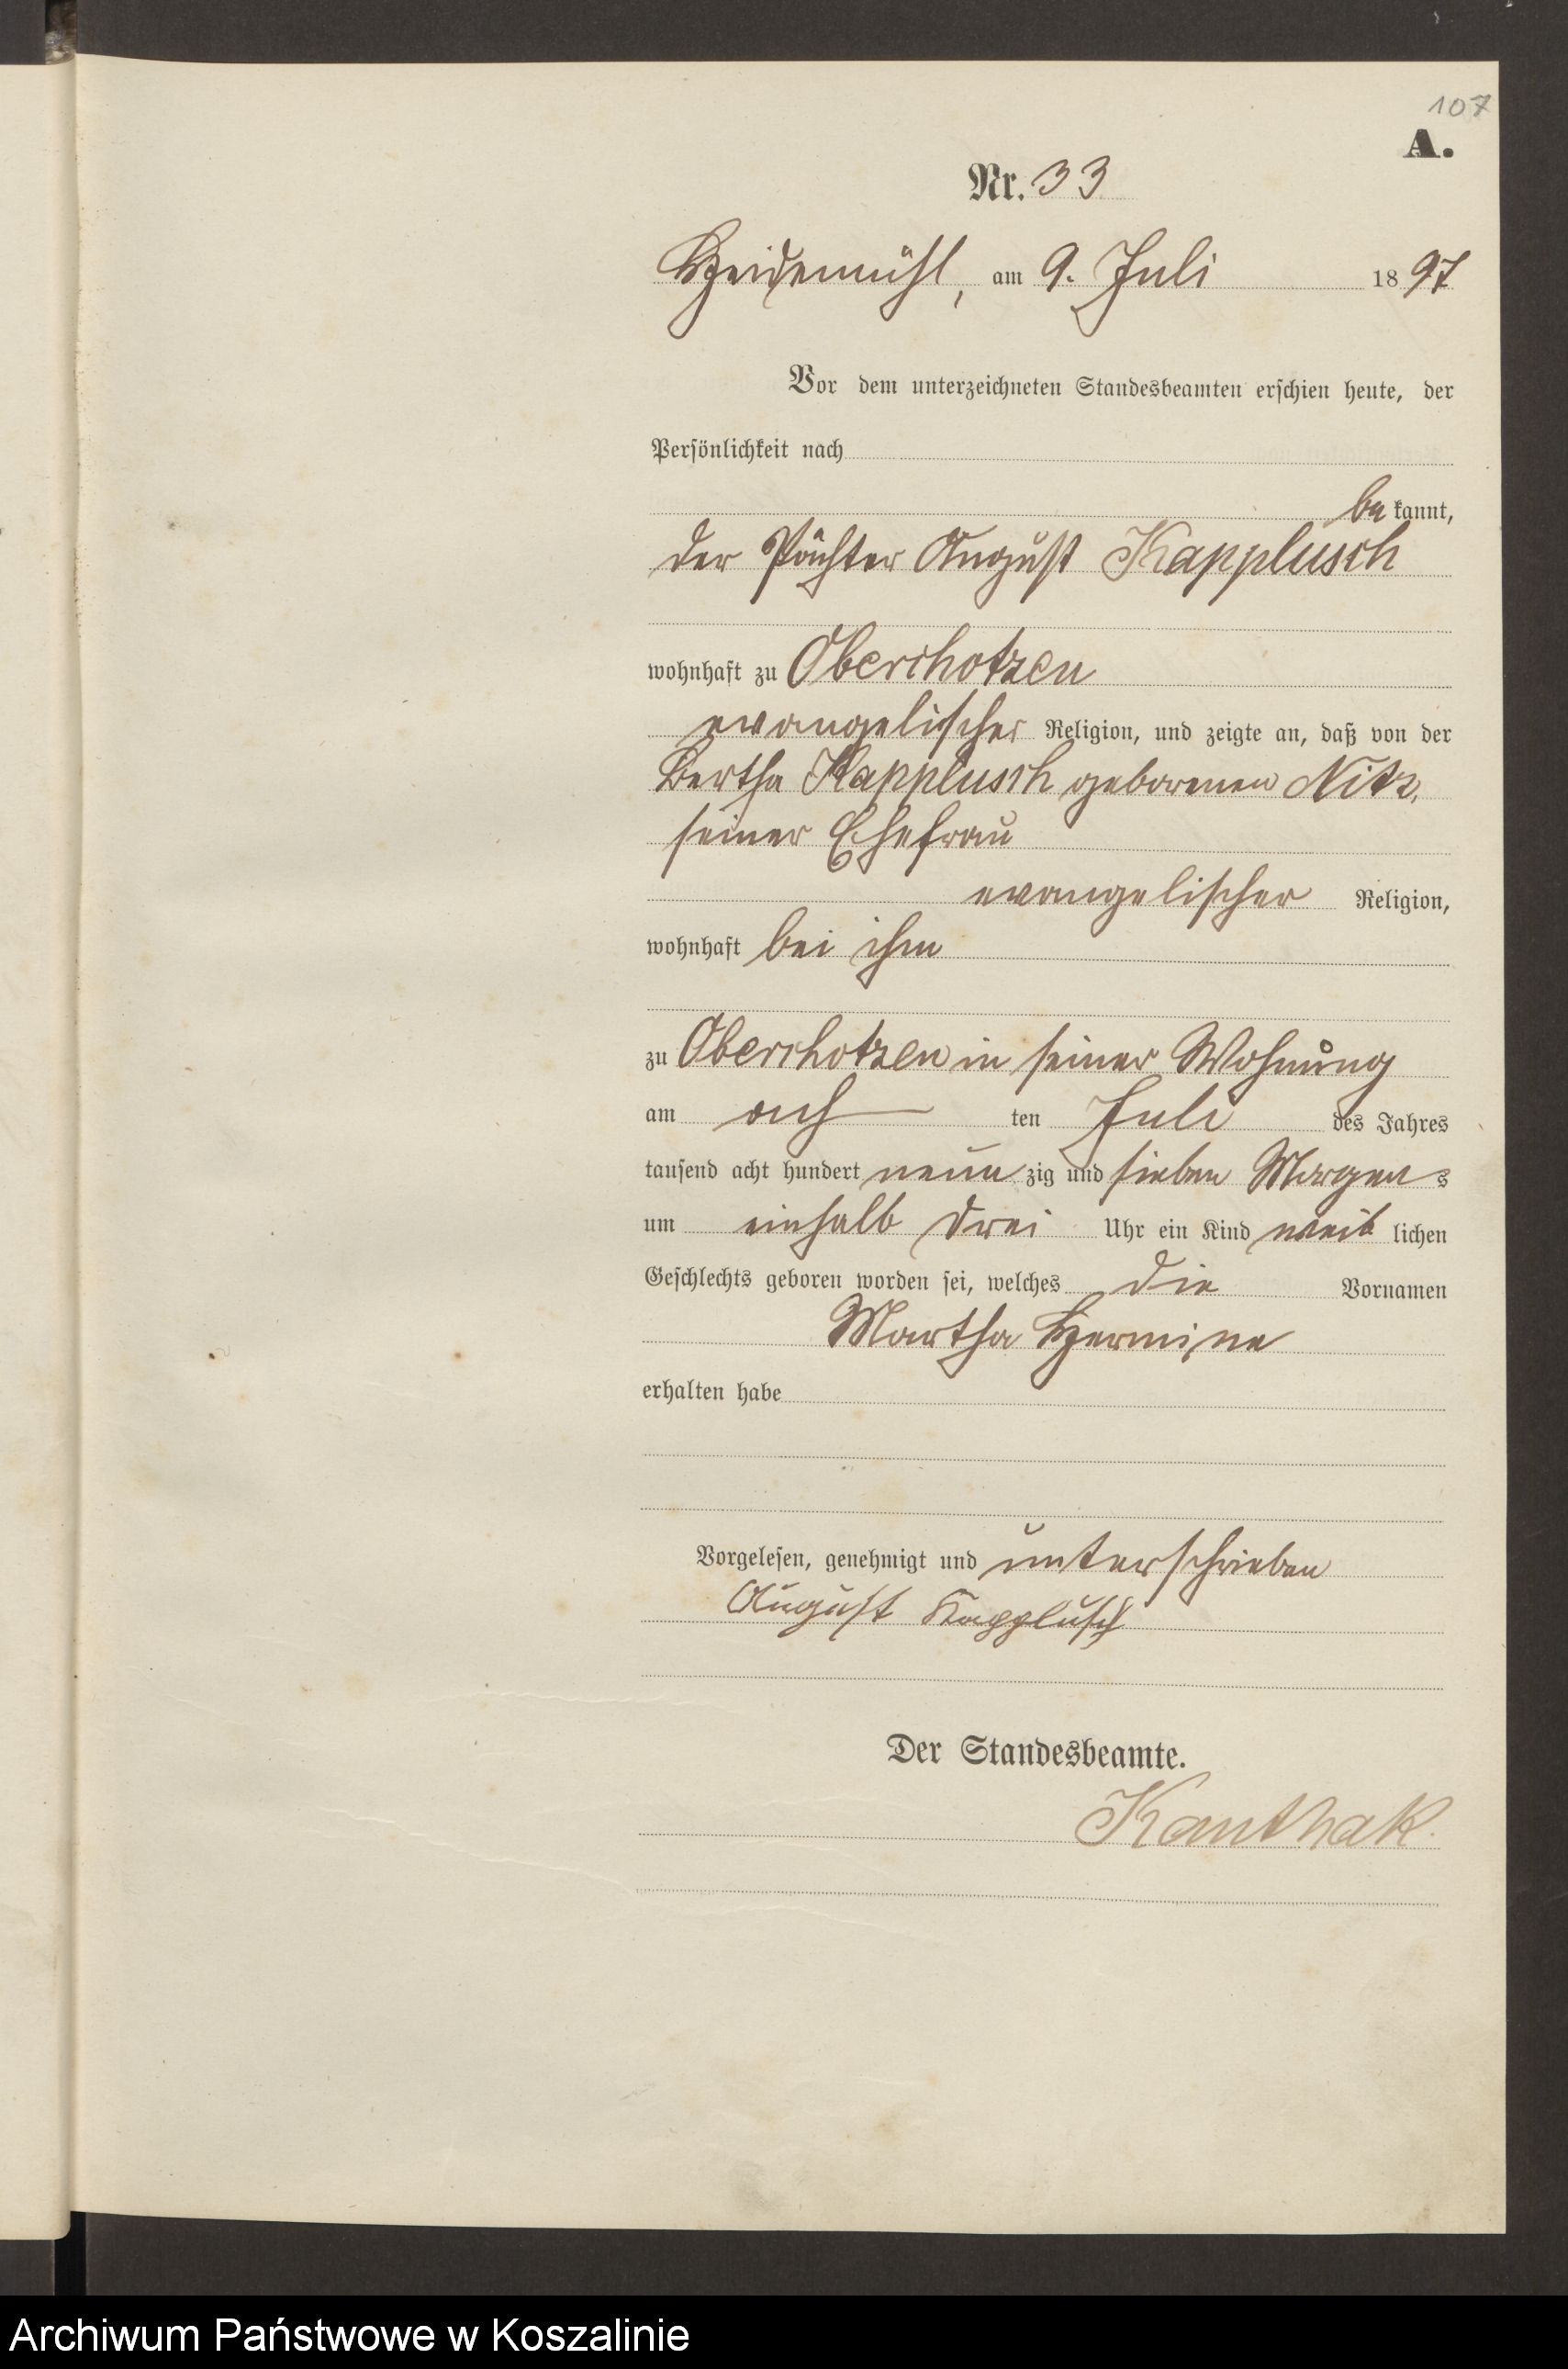 107
A.
Nr. 33
Heidemühl, am 9. Juli 1897
Vor dem unterzeichneten Standesbeamten erschien heute, der
Persönlichkeit nach
be kannt,
der Pächter August Kapplusch
wohnhaft zu Oberchotzen
evangelischer Religion, und zeigte an, daß von der
Bertha Kapplusch geborenen Nitz,
seiner Ehefrau
evangelischer Religion,
wohnhaft bei ihm
zu Oberchotzen in seiner Wohnung
am ach ten Juli des Jahres
tausend acht hundert neun zig und sieben Morgens
um einhalb drei Uhr ein Kind weib lichen
Geschlechts geboren worden sei, welches die Vornamen
Martha Hermine
erhalten habe
Vorgelesen, genehmigt und unterschrieben
August Kapplusch
Der Standesbeamte.
Kanthak.
Archiwum Państwowe w Koszalinie